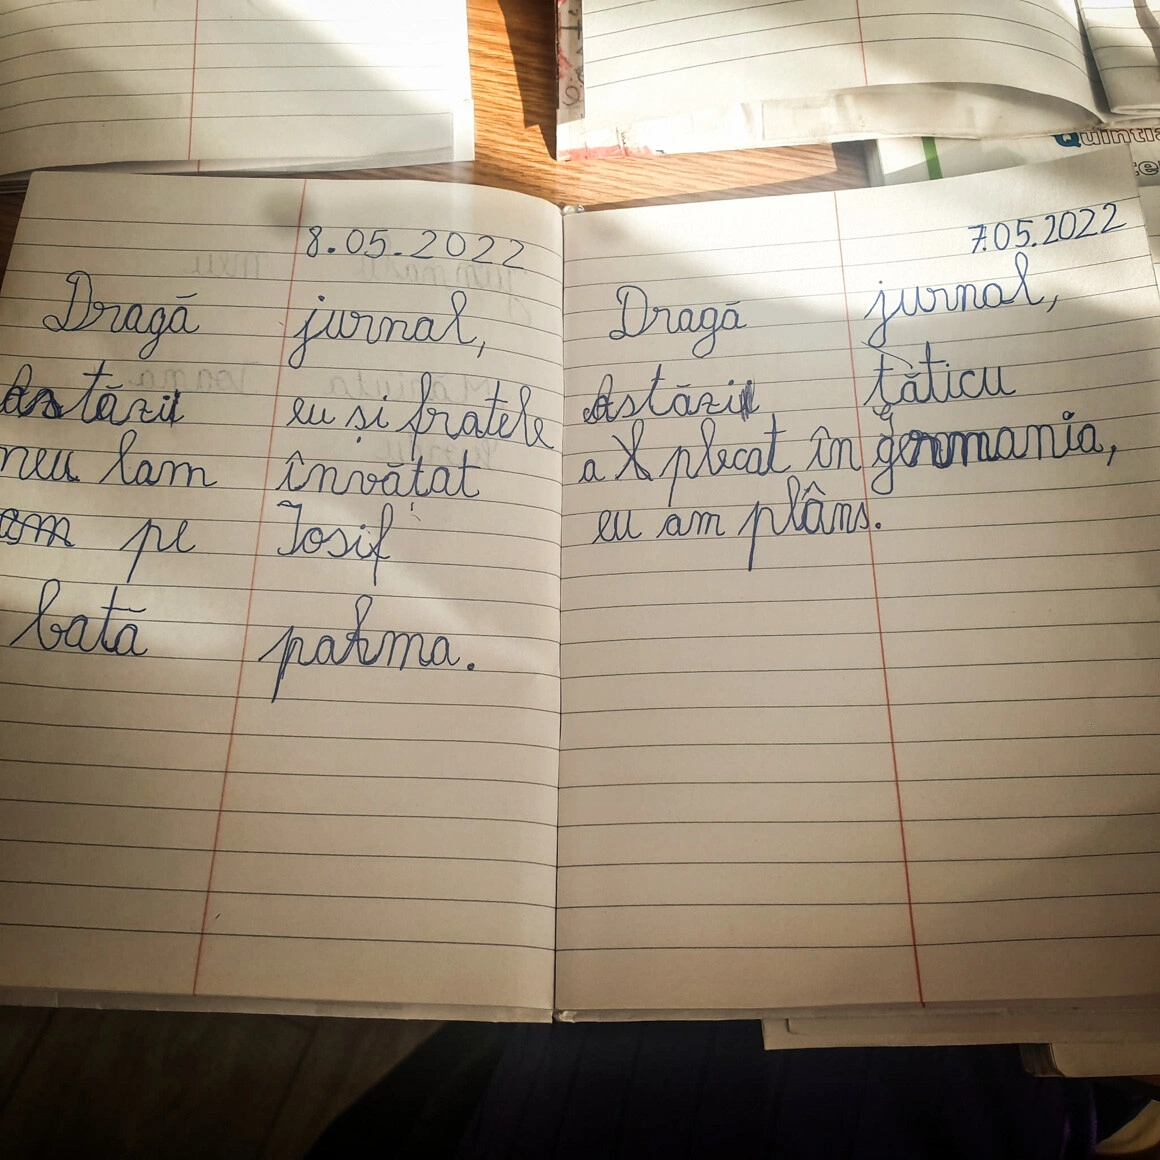 8.05.2022
Dragă jurnal,
Astăzi eu și fratele
meu lam învățat
am pe Iosif
bată palma.
7.05.2022
Dragă jurnal,
Astăzi tăticu
a plecat în germania,
eu am plâns.
Quintia
te